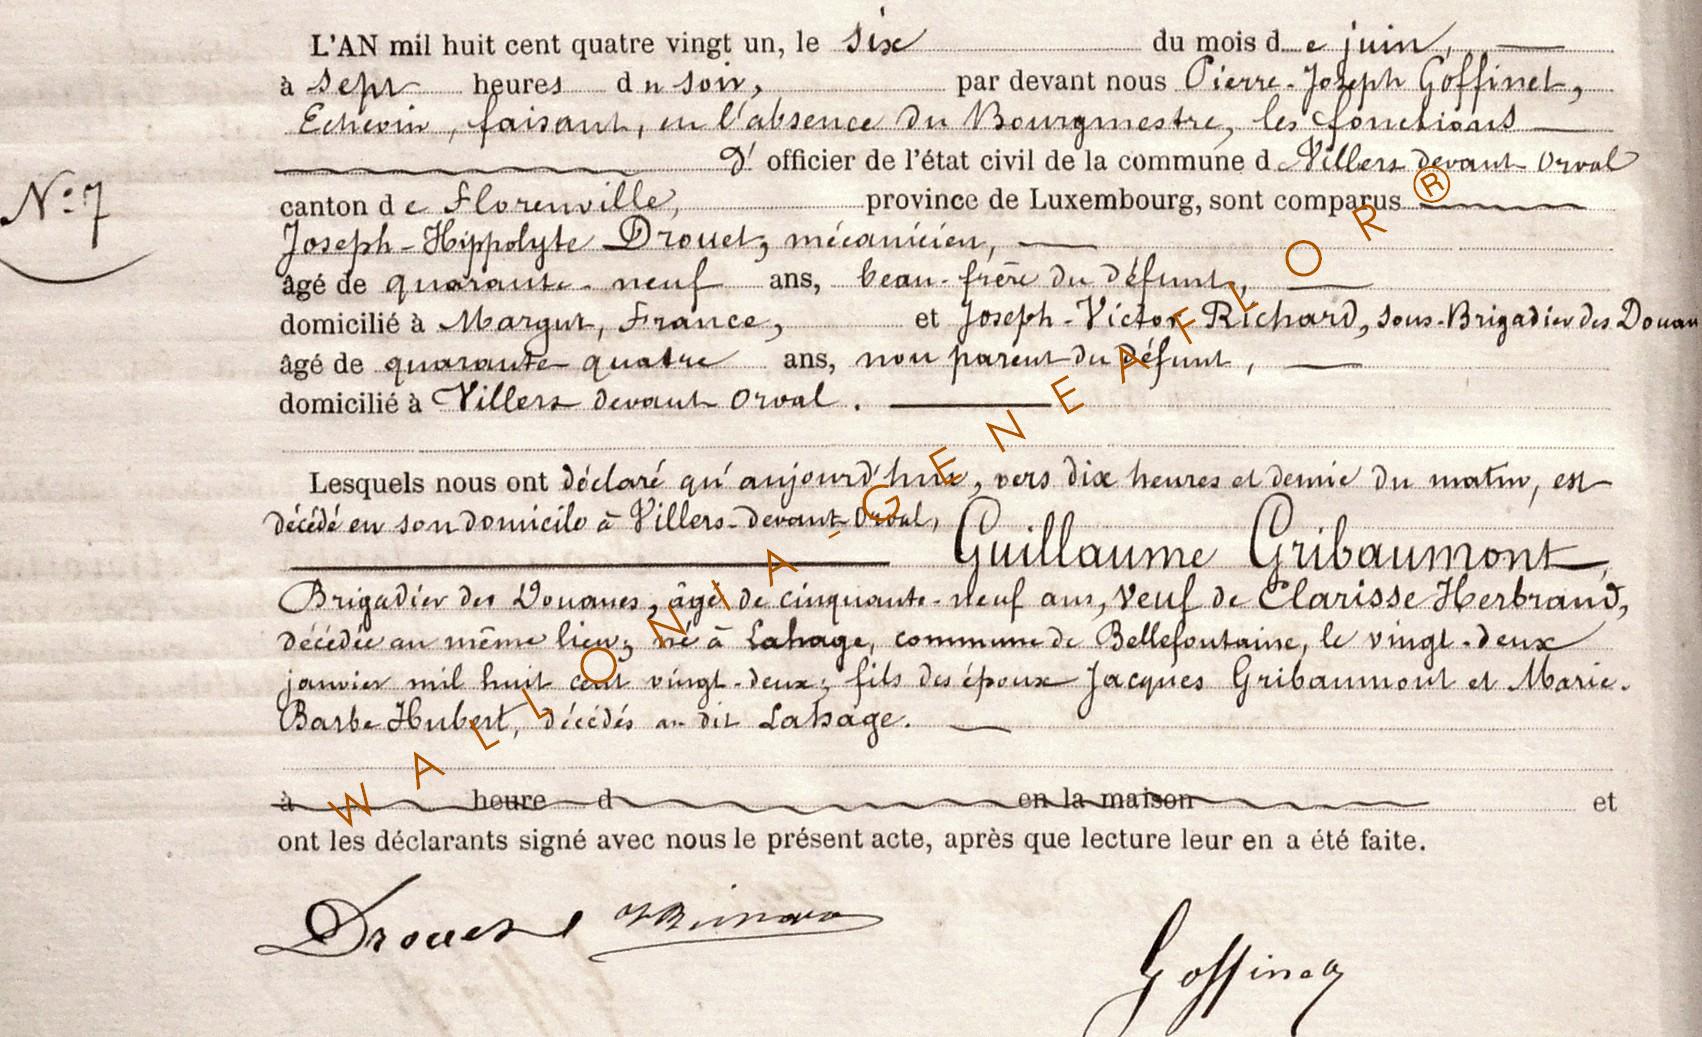 L'AN mil huit cent quatre vingt un, le six du mois de juin,
à sept heures du soir, par devant nous Pierre-Joseph Goffinet,
Echevin, faisant, en l'absence du Bourgmestre, les fonctions
d' officier de l'état civil de la commune d Villers devant Orval
N° 7
canton de Florenville, province de Luxembourg, sont comparus
Joseph-Hippolyte Drouet, mécanicien,
âgé de quarante-neuf ans, beau-frère du défunt,
domicilié à Margut, France, et Joseph-Victor Richard, Sous-Brigadier des Douan
âgé de quarante-quatre ans, non parent du défunt,
domicilié à Villers devant Orval.
Lesquels nous ont déclaré qu'aujourd'hui, vers dix heures et demie du matin, est
décédé en son domicile à Villers-devant-Orval,
Guillaume Gribaumont,
Brigadier des Douanes, âgé de cinquante-neuf ans, Veuf de Clarisse Herbrand,
décédée au même lieu; né à Lahage, commune de Bellefontaine, le vingt-deux
janvier mil huit cent vingt-deux; fils des époux Jacques Gribaumont et Marie-
Barbe Hubert, décédés au dit Lahage.
à heure d en la maison et
ont les déclarants signé avec nous le présent acte, après que lecture leur en a été faite.
Drouet
Goffinet
WALLONIA-GENEAFLOR®